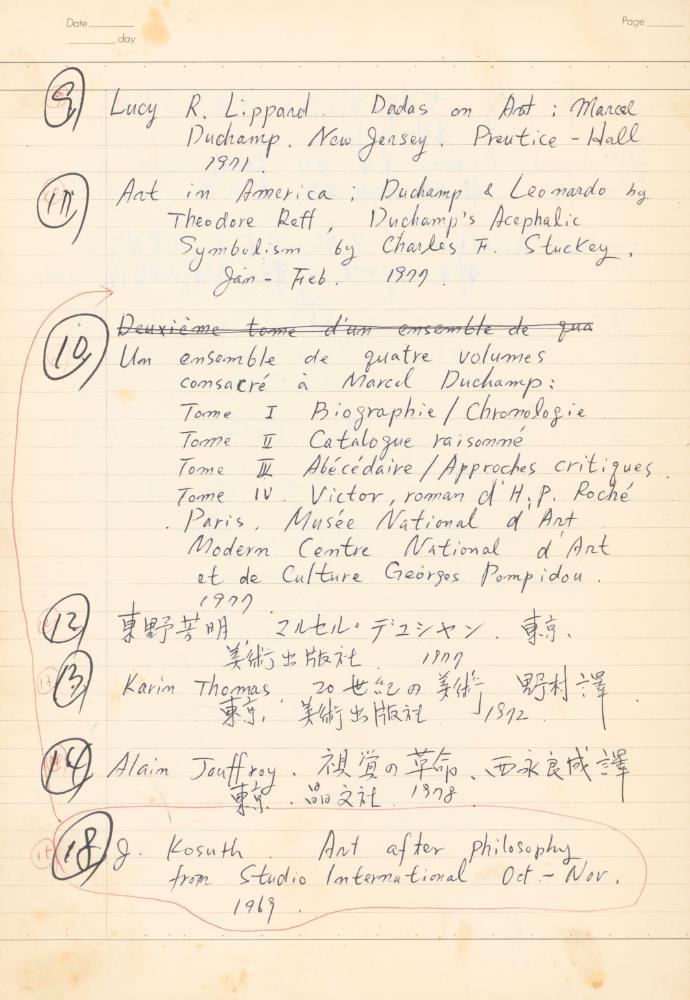 Date
day
Page
9 Lucy R. Lippard. Dadas on Art : Marcel
Duchamp. New Jersey. Prentice-Hall
1971.
Art in America ; Duchamp & Leonardo by
Theodore Reff, Duchamp's Acephalic
Symbolism by Charles F. Stuckey.
Jan - Feb. 1977.
Deuxième tome d'un ensemble de qua
10 Un ensemble de quatre volumes
consacré à Marcel Duchamp:
Tome I Biographie / Chronologie
Tome II Catalogue raisonné
Tome III Abécédaire / Approches critiques.
Tome IV. Victor, roman d'H.P. Roché
. Paris. Musée National d'Art
Modern Centre National d'Art
et de Culture Georges Pompidou.
1977.
12 東野芳明 マルセル・デュシャン. 東京.
美術出版社. 1977
13 Karin Thomas 20世紀の美術 野村譯.
東京. 美術出版社 1972.
14 Alain Jouffroy. 視覚の革命、西永良成譯
東京. 晶文社. 1978.
18 J. Kosuth. Art after philosophy
from Studio International Oct.- Nov.
1969.